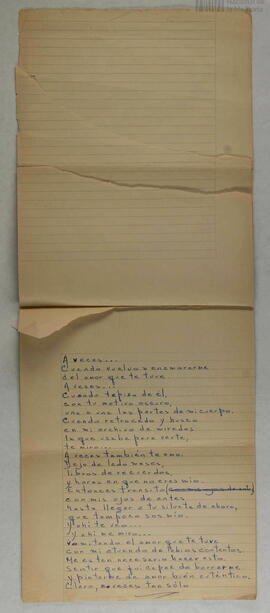 A veces...
Cuando vuelvo a enamorarme
del amor que te tuve.
A veces...
Cuando te pido de él,
con tu motivo oscuro,
una a una las partes de mi cuerpo.
Cuando retrocedo y busco
en mi archivo de miradas
la que usaba para verte,
te miro...
A veces también te amo.
Dejo de lado meses,
libros de recuerdos,
y horas en que no eres mío.
Entonces transito
con mis ojos de antes
hasta llegar a tu silueta de ahora,
que tampoco sos mío.
Y ahí te veo...
y ahí me miro...
el amor que te tuve
con mi atuendo de labios contentos.
Me es tan necesario hacer esto,
sentir que fui capaz de borrarme
y pintarme de amor bien auténtico.
Claro, a veces tan sólo